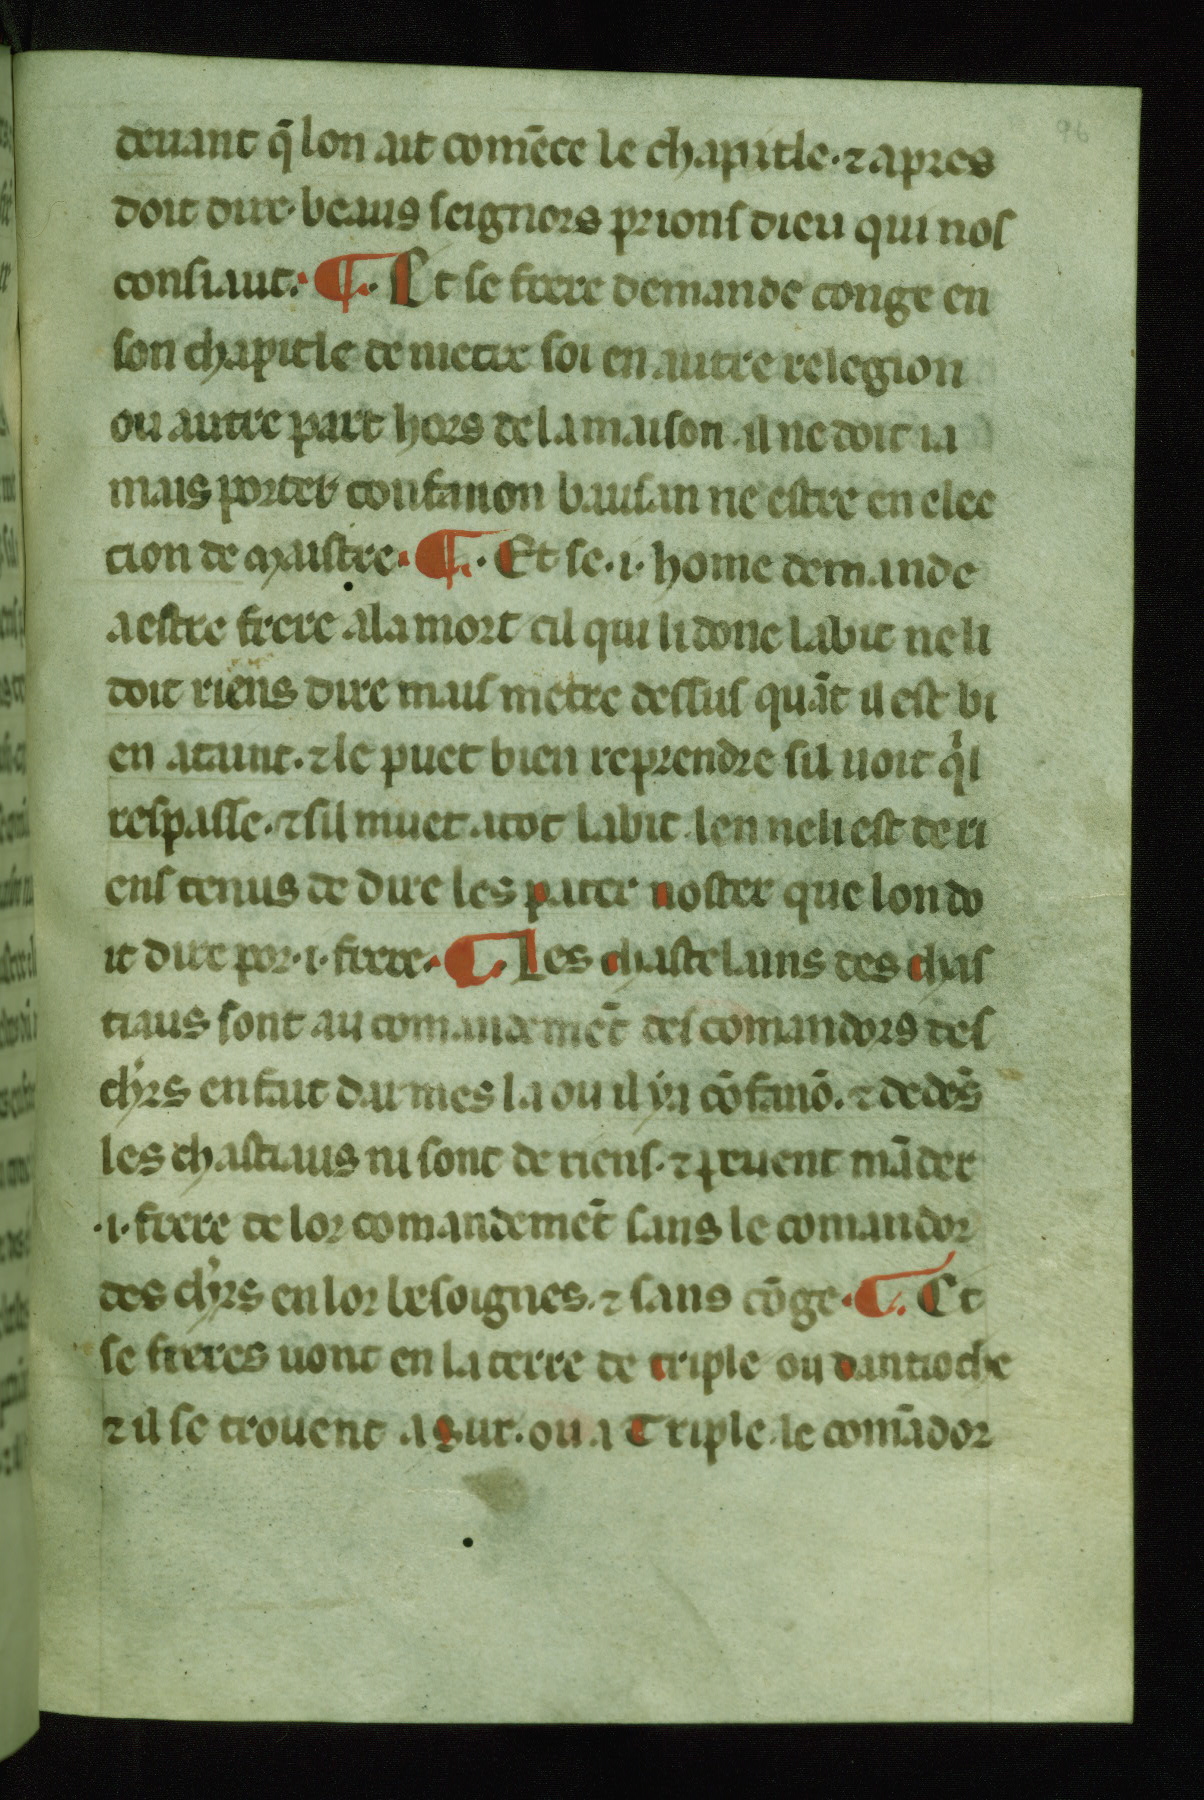 96
deuant q̃ lon ait comẽce le chapitle· ⁊ apres
doit dire· beaus seignors prions dieu qui nos
consiaut· ¶· Et se frere demande conge en
son chapitle de metre soi en autre relegion
ou autre part hors de la maison il ne doit ia
mais porter confanon bausan ne estre en elec
cion de maistre· ¶· Et se ·i· home demande
a estre frere a la mort cil qui li done labit ne li
doit riens dire mais metre dessus quãt il est bi
en ataint· ⁊ le puet bien reprendre sil uoit qͥl
respasse· ⁊ sil muet atot labit len ne li est de ri
ens tenus de dire les pater noster que lon do
it dire por ·i· frere· ¶ Les chastelains des chas
tiaus sont au comandemẽt des comandors des
chr̃s en fait darmes la ou il ya cõfanõ· ⁊ dedẽs
les chastiaus ni sont de riens· ⁊ peuent mãder
·i· frere de lor comandemẽt sans le comandor
des chr̃s en lor besoignes· ⁊ sans cõge· ¶ Et
se freres uont en la terre de triple ou dantioche
⁊ il se trouent a sur· ou a Triple le comãdor